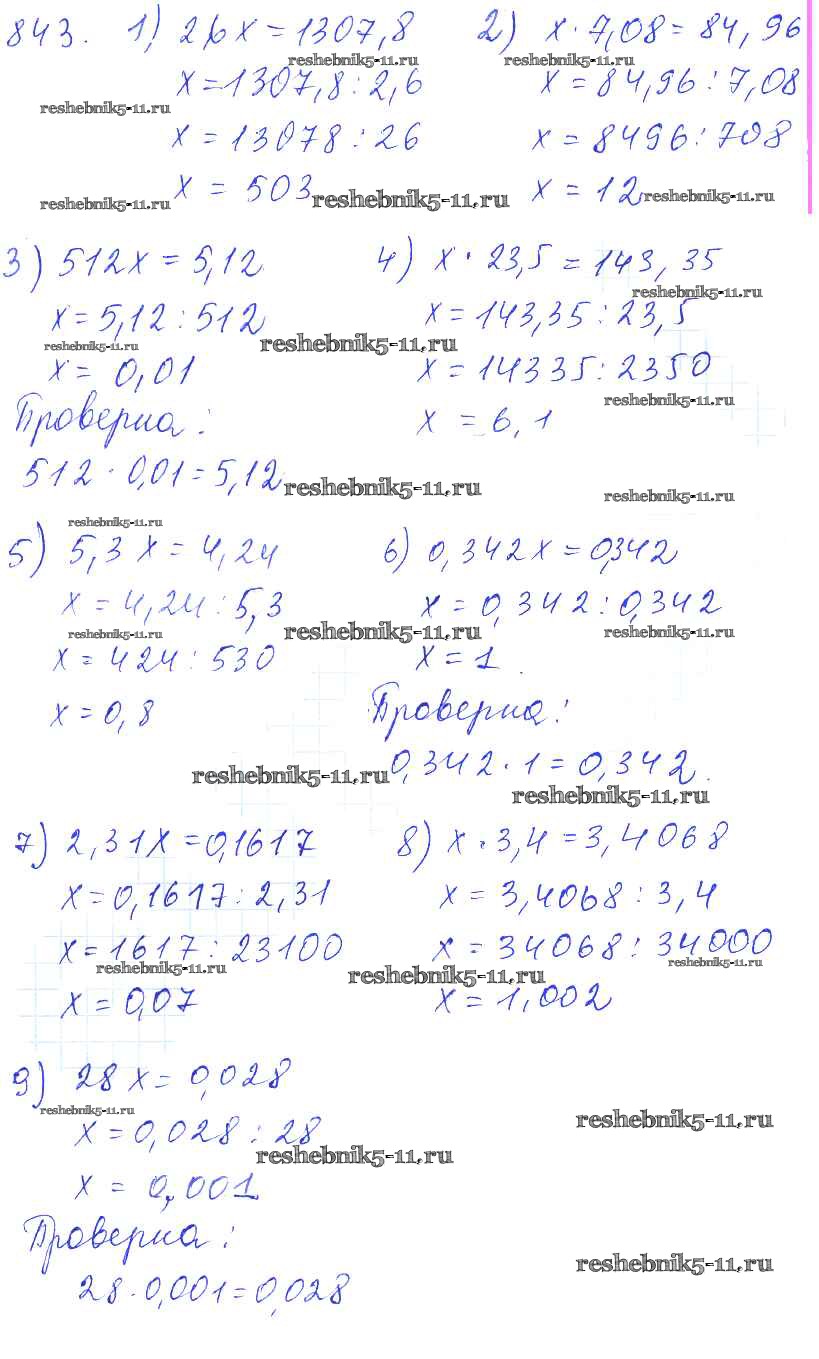 843. 1) 2,6x = 1307,8
reshebnik5-11.ru
x = 1307,8 : 2,6
reshebnik5-11.ru
x = 13078 : 26
x = 503
reshebnik5-11.ru
reshebnik5-11.ru
2) x · 7,08 = 84,96
reshebnik5-11.ru
x = 84,96 : 7,08
x = 8496 : 708
x = 12
reshebnik5-11.ru
3) 512x = 5,12
x = 5,12 : 512
reshebnik5-11.ru
reshebnik5-11.ru
x = 0,01
Проверка:
512 · 0,01 = 5,12
reshebnik5-11.ru
4) x · 23,5 = 143,35
reshebnik5-11.ru
x = 143,35 : 23,5
x = 14335 : 2350
reshebnik5-11.ru
x = 6,1
reshebnik5-11.ru
reshebnik5-11.ru
5) 5,3x = 4,24
x = 4,24 : 5,3
reshebnik5-11.ru
reshebnik5-11.ru
x = 424 : 530
x = 0,8
6) 0,342x = 0,342
x = 0,342 : 0,342
reshebnik5-11.ru
x = 1
Проверка:
0,342 · 1 = 0,342
reshebnik5-11.ru
reshebnik5-11.ru
7) 2,31x = 0,1617
x = 0,1617 : 2,31
x = 1617 : 23100
reshebnik5-11.ru
x = 0,07
8) x · 3,4 = 3,4068
x = 3,4068 : 3,4
x = 34068 : 34000
reshebnik5-11.ru
reshebnik5-11.ru
x = 1,002
9) 28x = 0,028
reshebnik5-11.ru
x = 0,028 : 28
reshebnik5-11.ru
reshebnik5-11.ru
x = 0,001
Проверка:
reshebnik5-11.ru
28 · 0,001 = 0,028